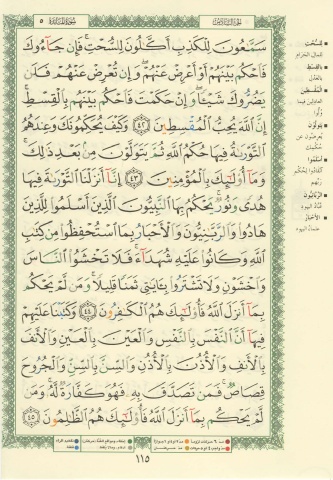 سُورَةُ المَائِدَة ٥
سَمَّٰعُونَ لِلْكَذِبِ أَكَّٰلُونَ لِلسُّحْتِ ۚ فَإِن جَآءُوكَ
فَٱحْكُم بَيْنَهُمْ أَوْ أَعْرِضْ عَنْهُمْ ۖ وَإِن تُعْرِضْ عَنْهُمْ فَلَن
يَضُرُّوكَ شَيْـًٔا ۖ وَإِنْ حَكَمْتَ فَٱحْكُم بَيْنَهُم بِٱلْقِسْطِ ۚ
إِنَّ ٱللَّهَ يُحِبُّ ٱلْمُقْسِطِينَ ٤٢ وَكَيْفَ يُحَكِّمُونَكَ وَعِندَهُمُ
ٱلتَّوْرَىٰةُ فِيهَا حُكْمُ ٱللَّهِ ثُمَّ يَتَوَلَّوْنَ مِنۢ بَعْدِ ذَٰلِكَ ۚ
وَمَآ أُو۟لَٰٓئِكَ بِٱلْمُؤْمِنِينَ ٤٣ إِنَّآ أَنزَلْنَا ٱلتَّوْرَىٰةَ فِيهَا
هُدًى وَنُورٌ ۚ يَحْكُمُ بِهَا ٱلنَّبِيُّونَ ٱلَّذِينَ أَسْلَمُوا۟ لِلَّذِينَ
هَادُوا۟ وَٱلرَّبَّٰنِيُّونَ وَٱلْأَحْبَارُ بِمَا ٱسْتُحْفِظُوا۟ مِن كِتَٰبِ
ٱللَّهِ وَكَانُوا۟ عَلَيْهِ شُهَدَآءَ ۚ فَلَا تَخْشَوُا۟ ٱلنَّاسَ
وَٱخْشَوْنِ وَلَا تَشْتَرُوا۟ بِـَٔايَٰتِى ثَمَنًا قَلِيلًا ۚ وَمَن لَّمْ يَحْكُم
بِمَآ أَنزَلَ ٱللَّهُ فَأُو۟لَٰٓئِكَ هُمُ ٱلْكَٰفِرُونَ ٤٤ وَكَتَبْنَا عَلَيْهِمْ
فِيهَآ أَنَّ ٱلنَّفْسَ بِٱلنَّفْسِ وَٱلْعَيْنَ بِٱلْعَيْنِ وَٱلْأَنفَ
بِٱلْأَنفِ وَٱلْأُذُنَ بِٱلْأُذُنِ وَٱلسِّنَّ بِٱلسِّنِّ وَٱلْجُرُوحَ
قِصَاصٌ ۚ فَمَن تَصَدَّقَ بِهِۦ فَهُوَ كَفَّارَةٌ لَّهُۥ ۚ وَمَن
لَّمْ يَحْكُم بِمَآ أَنزَلَ ٱللَّهُ فَأُو۟لَٰٓئِكَ هُمُ ٱلظَّٰلِمُونَ ٤٥
لِلسُّحْتِ
للمال الحرام
بِالْقِسْطِ
بالعدل
الْمُقْسِطِينَ
يَتَوَلَّوْنَ
أَسْلَمُوا
الرَّبَّانِيُّونَ
الأَحْبَارُ
علماء اليهود
١١٥